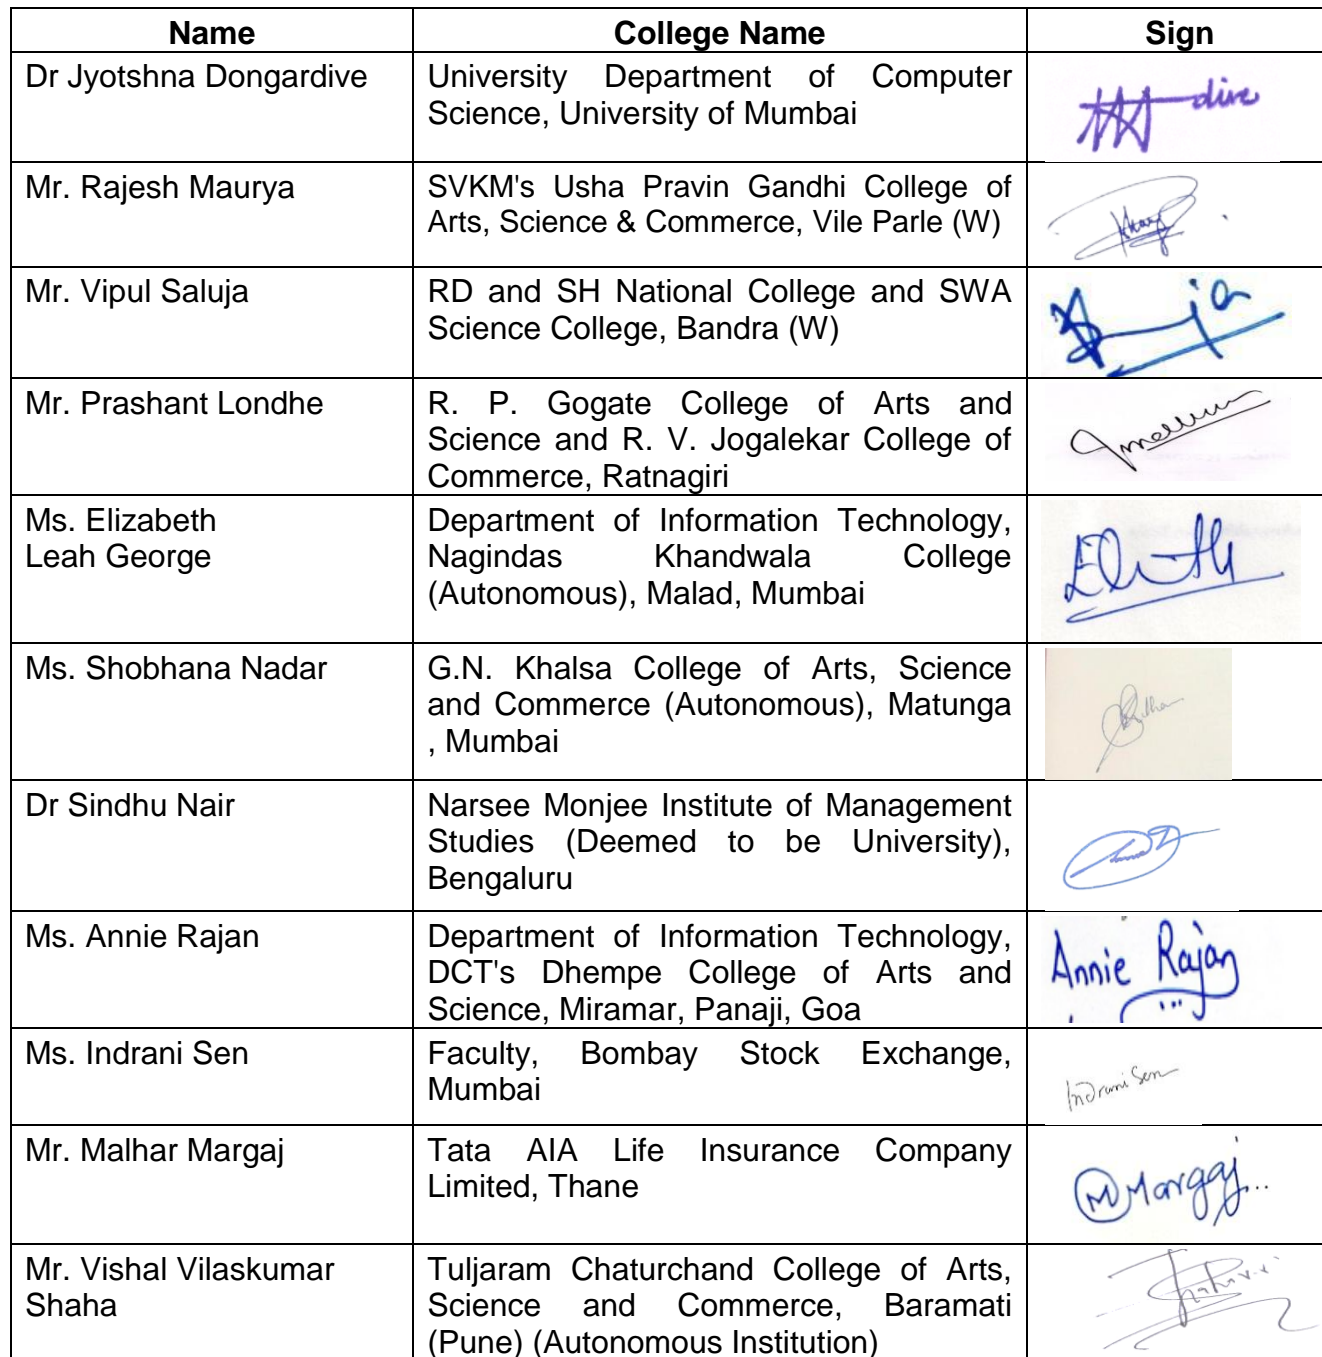 Name College Name Sign
Dr Jyotshna Dongardive
University Department of Computer
Science, University of Mumbai
dive
Mr. Rajesh Maurya
SVKM's Usha Pravin Gandhi College of
Arts, Science & Commerce, Vile Parle (W)
Mr. Vipul Saluja
RD and SH National College and SWA
Science College, Bandra (W)
Mr. Prashant Londhe
R. P. Gogate College of Arts and
Science and R. V. Jogalekar College of
Commerce, Ratnagiri
Ms. Elizabeth
Leah George
Department of Information Technology,
Nagindas Khandwala College
(Autonomous), Malad, Mumbai
Ms. Shobhana Nadar
G.N. Khalsa College of Arts, Science
and Commerce (Autonomous), Matunga
, Mumbai
Dr Sindhu Nair
Narsee Monjee Institute of Management
Studies (Deemed to be University),
Bengaluru
Ms. Annie Rajan
Department of Information Technology,
DCT's Dhempe College of Arts and
Science, Miramar, Panaji, Goa
Annie Rajan
Ms. Indrani Sen
Faculty, Bombay Stock Exchange,
Mumbai
Indrani Sen
Mr. Malhar Margaj
Tata AIA Life Insurance Company
Limited, Thane
M Margaj..
Mr. Vishal Vilaskumar
Shaha
Tuljaram Chaturchand College of Arts,
Science and Commerce, Baramati
(Pune) (Autonomous Institution)